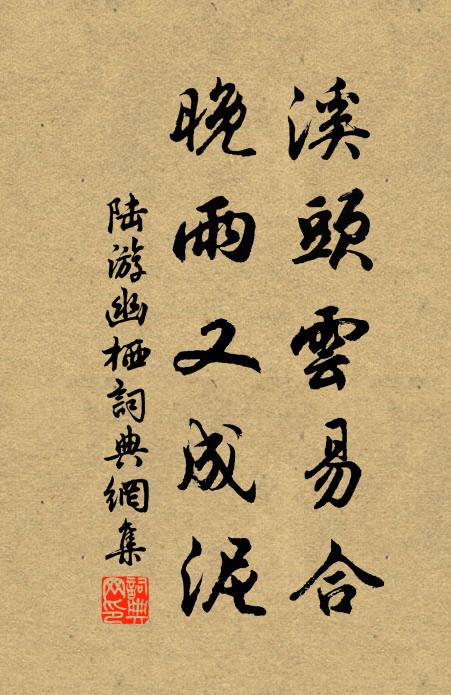 溪頭雲易合
晚雨又成泥
陸游幽栖詞典網集
詞典網印